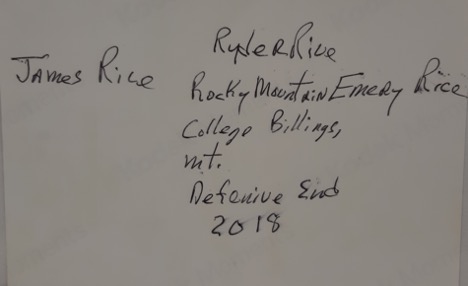 James Rice
Ryder Rice
Rocky Mountain Emery Rice
College Billings,
mt.
Defenive End
2018